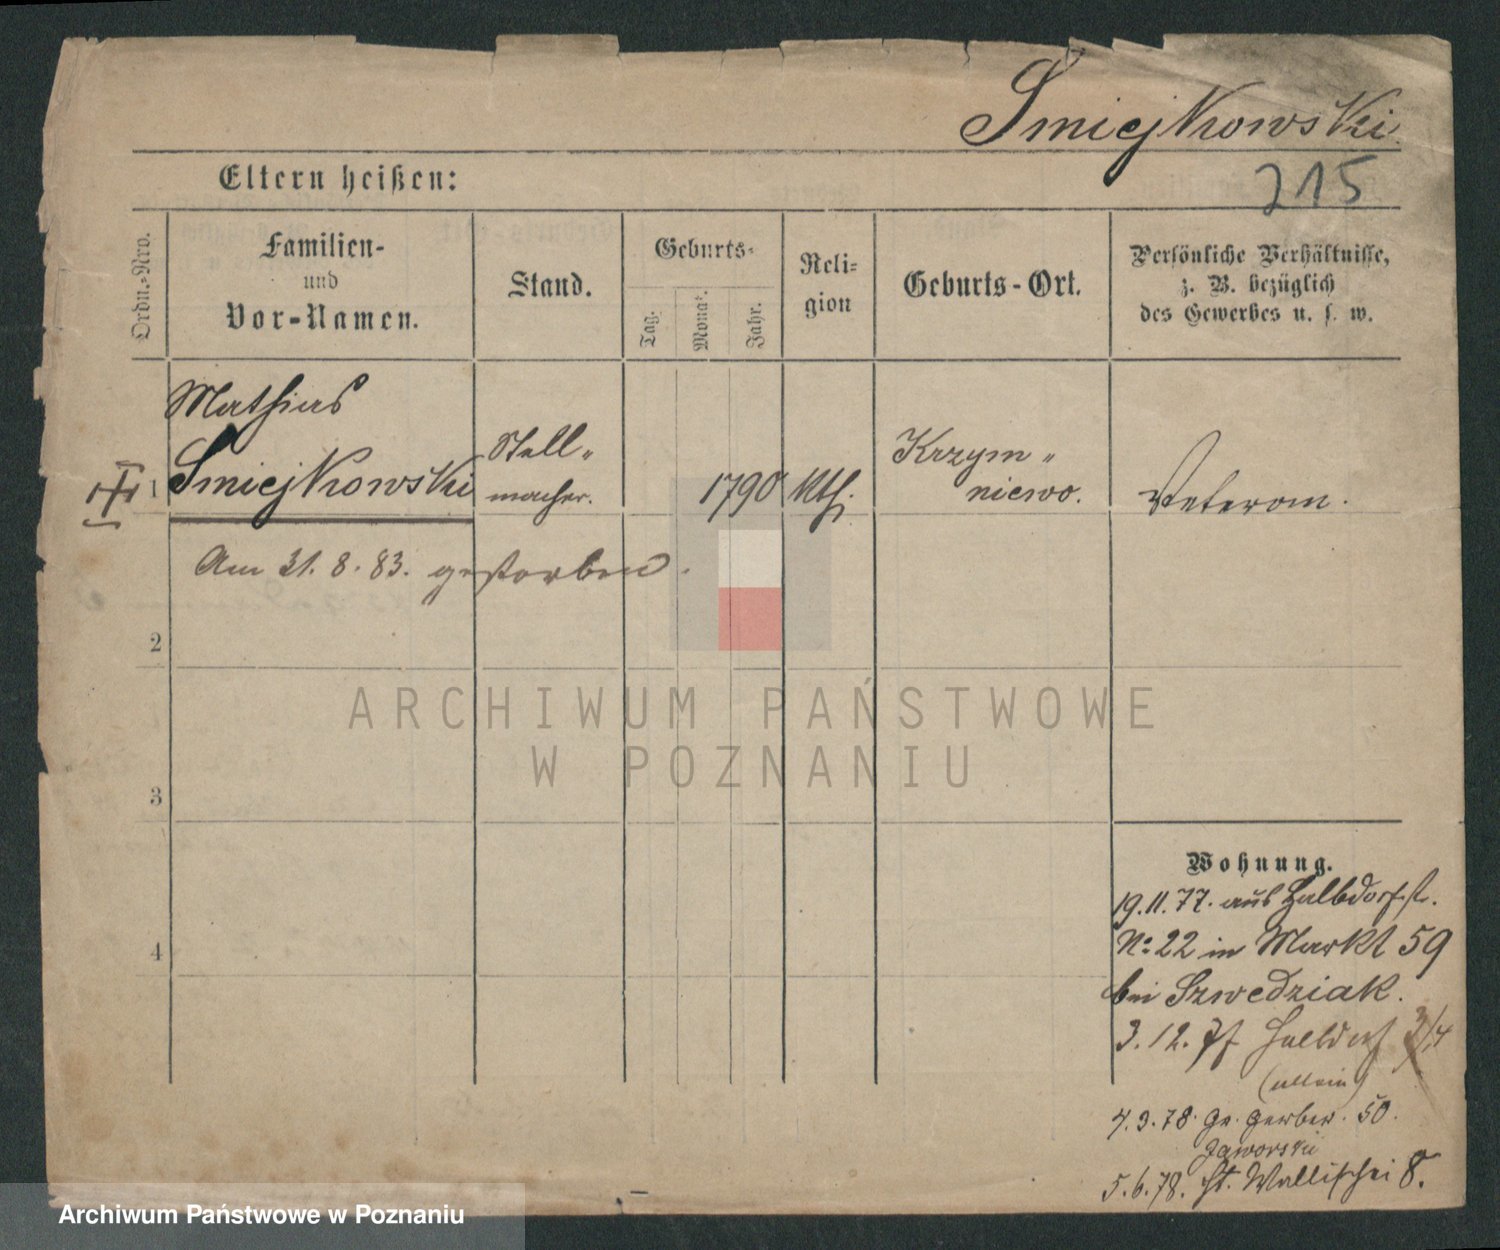 Smiejkowski
215
Eltern heißen:
Ordn.-Nro.
Familien-
und
Vor-Namen.
Stand.
Geburts-
Tag.
Monat.
Jahr.
Reli-
gion
Geburts-Ort.
Persönliche Verhältnisse,
z. B. bezüglich
des Gewerbes u. s. w.
Mathias
1 Smiejkowski
Stell-
macher.
1790
kth.
Krzym-
niewo.
Veteran.
Am 31. 8. 83. gestorben.
2
3
4
ARCHIWUM PAŃSTWOWE
W POZNANIU
Wohnung.
19.11.77. aus Halbdorfst.
No 22 in Markt 59
bei Szwedziak.
3. 12. 77 Halbdorf
(allein)
4.3.78. Gr. Gerber. 50.
Jaworski
5.6.78. St. Wallischei 8.
Archiwum Państwowe w Poznaniu